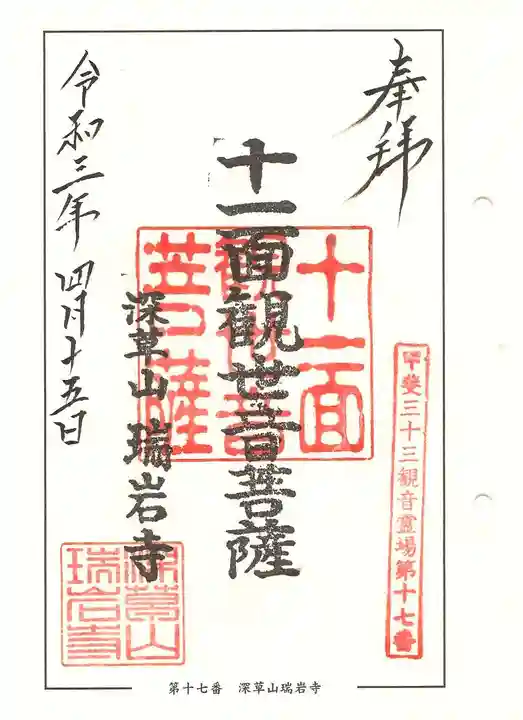 奉拝
甲斐三十三観音霊場第十七番
十一面観世音菩薩
十一面
観世音
菩薩
深草山 瑞岩寺
深草山
瑞岩寺
令和三年 四月十五日
第十七番 深草山瑞岩寺